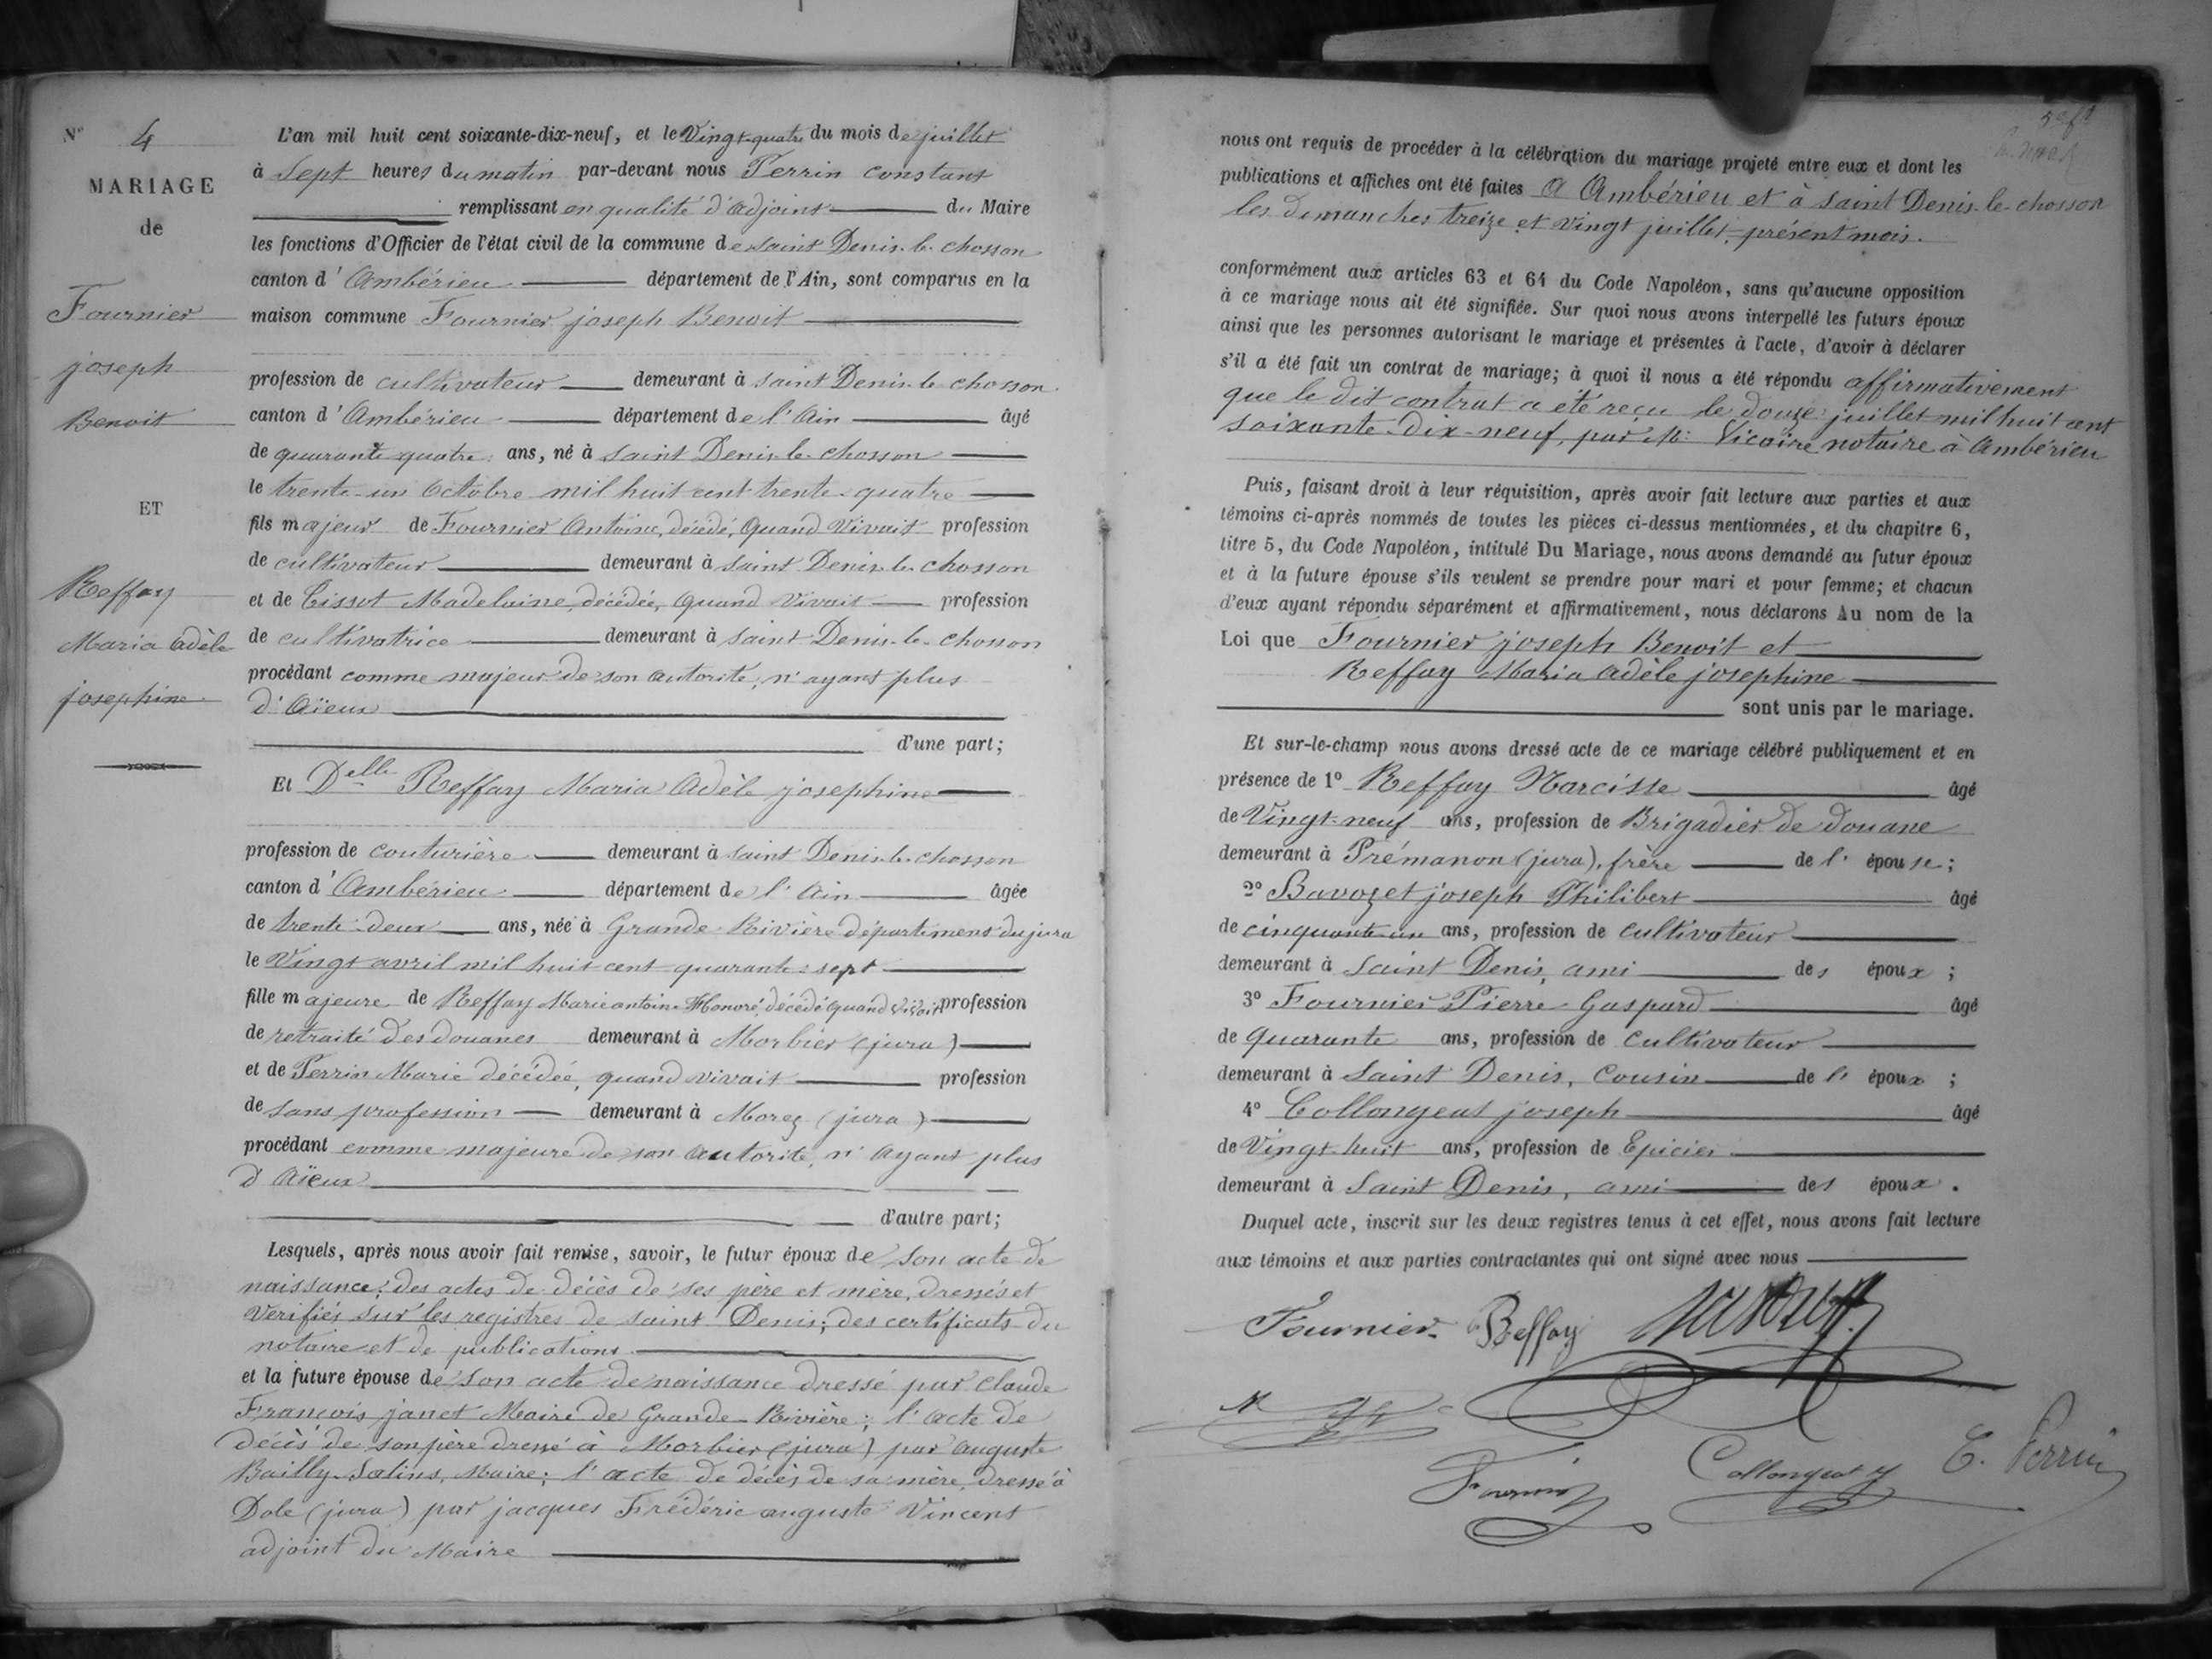 N° 4
MARIAGE
de
Fournier
joseph
Benoit
ET
Reffay
Maria Adèle
josephine
L'an mil huit cent soixante-dix-neuf, et le Vingt-quatre du mois de juillet
à Sept heures du matin par-devant nous Perrin constant
remplissant en qualité d'adjoint du Maire
les fonctions d'Officier de l'état civil de la commune de saint Denis-le-chosson
canton d'Ambérieu département de l'Ain, sont comparus en la
maison commune Fournier joseph Benoit
profession de cultivateur demeurant à saint Denis-le-chosson
canton d'Ambérieu département de l'Ain âgé
de quarante quatre ans, né à saint Denis-le-chosson
le trente-un Octobre mil huit cent trente-quatre
fils majeur de Fournier Antoine, décédé, quand Vivait profession
de cultivateur demeurant à saint Denis-le-chosson
et de Tissot Madelaine, décédée, quand Vivait profession
de cultivatrice demeurant à saint Denis-le-chosson
procédant comme majeur de son autorité, n'ayant plus
d'Aïeux
d'une part;
Et Delle Reffay Maria Adèle josephine
profession de couturière demeurant à saint Denis-le-chosson
canton d'Ambérieu département de l'Ain âgée
de trente-deux ans, née à Grande-Rivière département du jura
le Vingt avril mil huit cent quarante-sept
fille majeure de Reffay Marie antoine Honoré, décédé quand vivait profession
de retraité des douanes demeurant à Morbier (jura)
et de Perrin Marie décédée, quand vivait profession
de sans profession demeurant à Morez (jura)
procédant comme majeure de son autorité, n'ayant plus
d'Aïeux
d'autre part;
Lesquels, après nous avoir fait remise, savoir, le futur époux de son acte de
naissance; des actes de décès de ses père et mère, dressés et
Verifiés sur les registres de saint Denis; des certificats du
notaire et de publications
et la future épouse de son acte de naissance dressé par Claude
François janet Maire de Grande-Rivière; l'acte de
décès de son père dressé à Morbier (jura) par auguste
Bailly-Salins, Maire; l'acte de décès de sa mère, dressé à
Dole (jura) par jacques Frédéric auguste Vincent
adjoint du Maire
nous ont requis de procéder à la célébration du mariage projeté entre eux et dont les
publications et affiches ont été faites a Ambérieu et à saint Denis-le-chosson
les dimanches treize et vingt juillet, présent mois.
conformément aux articles 63 et 64 du Code Napoléon, sans qu'aucune opposition
à ce mariage nous ait été signifiée. Sur quoi nous avons interpellé les futurs époux
ainsi que les personnes autorisant le mariage et présentes à l'acte, d'avoir à déclarer
s'il a été fait un contrat de mariage; à quoi il nous a été répondu affirmativement
que le dit contrat a eté reçu le douze juillet mil huit cent
soixante-dix-neuf, par Me Vicaire notaire à Ambérieu
Puis, faisant droit à leur réquisition, après avoir fait lecture aux parties et aux
témoins ci-après nommés de toutes les pièces ci-dessus mentionnées, et du chapitre 6,
titre 5, du Code Napoléon, intitulé Du Mariage, nous avons demandé au futur époux
et à la future épouse s'ils veulent se prendre pour mari et pour femme; et chacun
d'eux ayant répondu séparément et affirmativement, nous déclarons Au nom de la
Loi que Fournier joseph Benoit et
Reffay Maria Adèle josephine
sont unis par le mariage.
Et sur-le-champ nous avons dressé acte de ce mariage célébré publiquement et en
présence de 1° Reffay Narcisse âgé
de Vingt-neuf ans, profession de Brigadier de douane
demeurant à Prémanon (jura), frère de l'épouse;
2° Bavozet joseph Philibert âgé
de cinquante-un ans, profession de cultivateur
demeurant à Saint Denis, ami des époux;
3° Fournier Pierre-Gaspard âgé
de quarante ans, profession de cultivateur
demeurant à Saint Denis, Cousin de l'époux;
4° Collongeat joseph âgé
de Vingt-huit ans, profession de Epicier
demeurant à Saint Denis, ami des époux.
Duquel acte, inscrit sur les deux registres tenus à cet effet, nous avons fait lecture
aux témoins et aux parties contractantes qui ont signé avec nous
Fournier Reffay
Fournier Collongeat C. Perrin